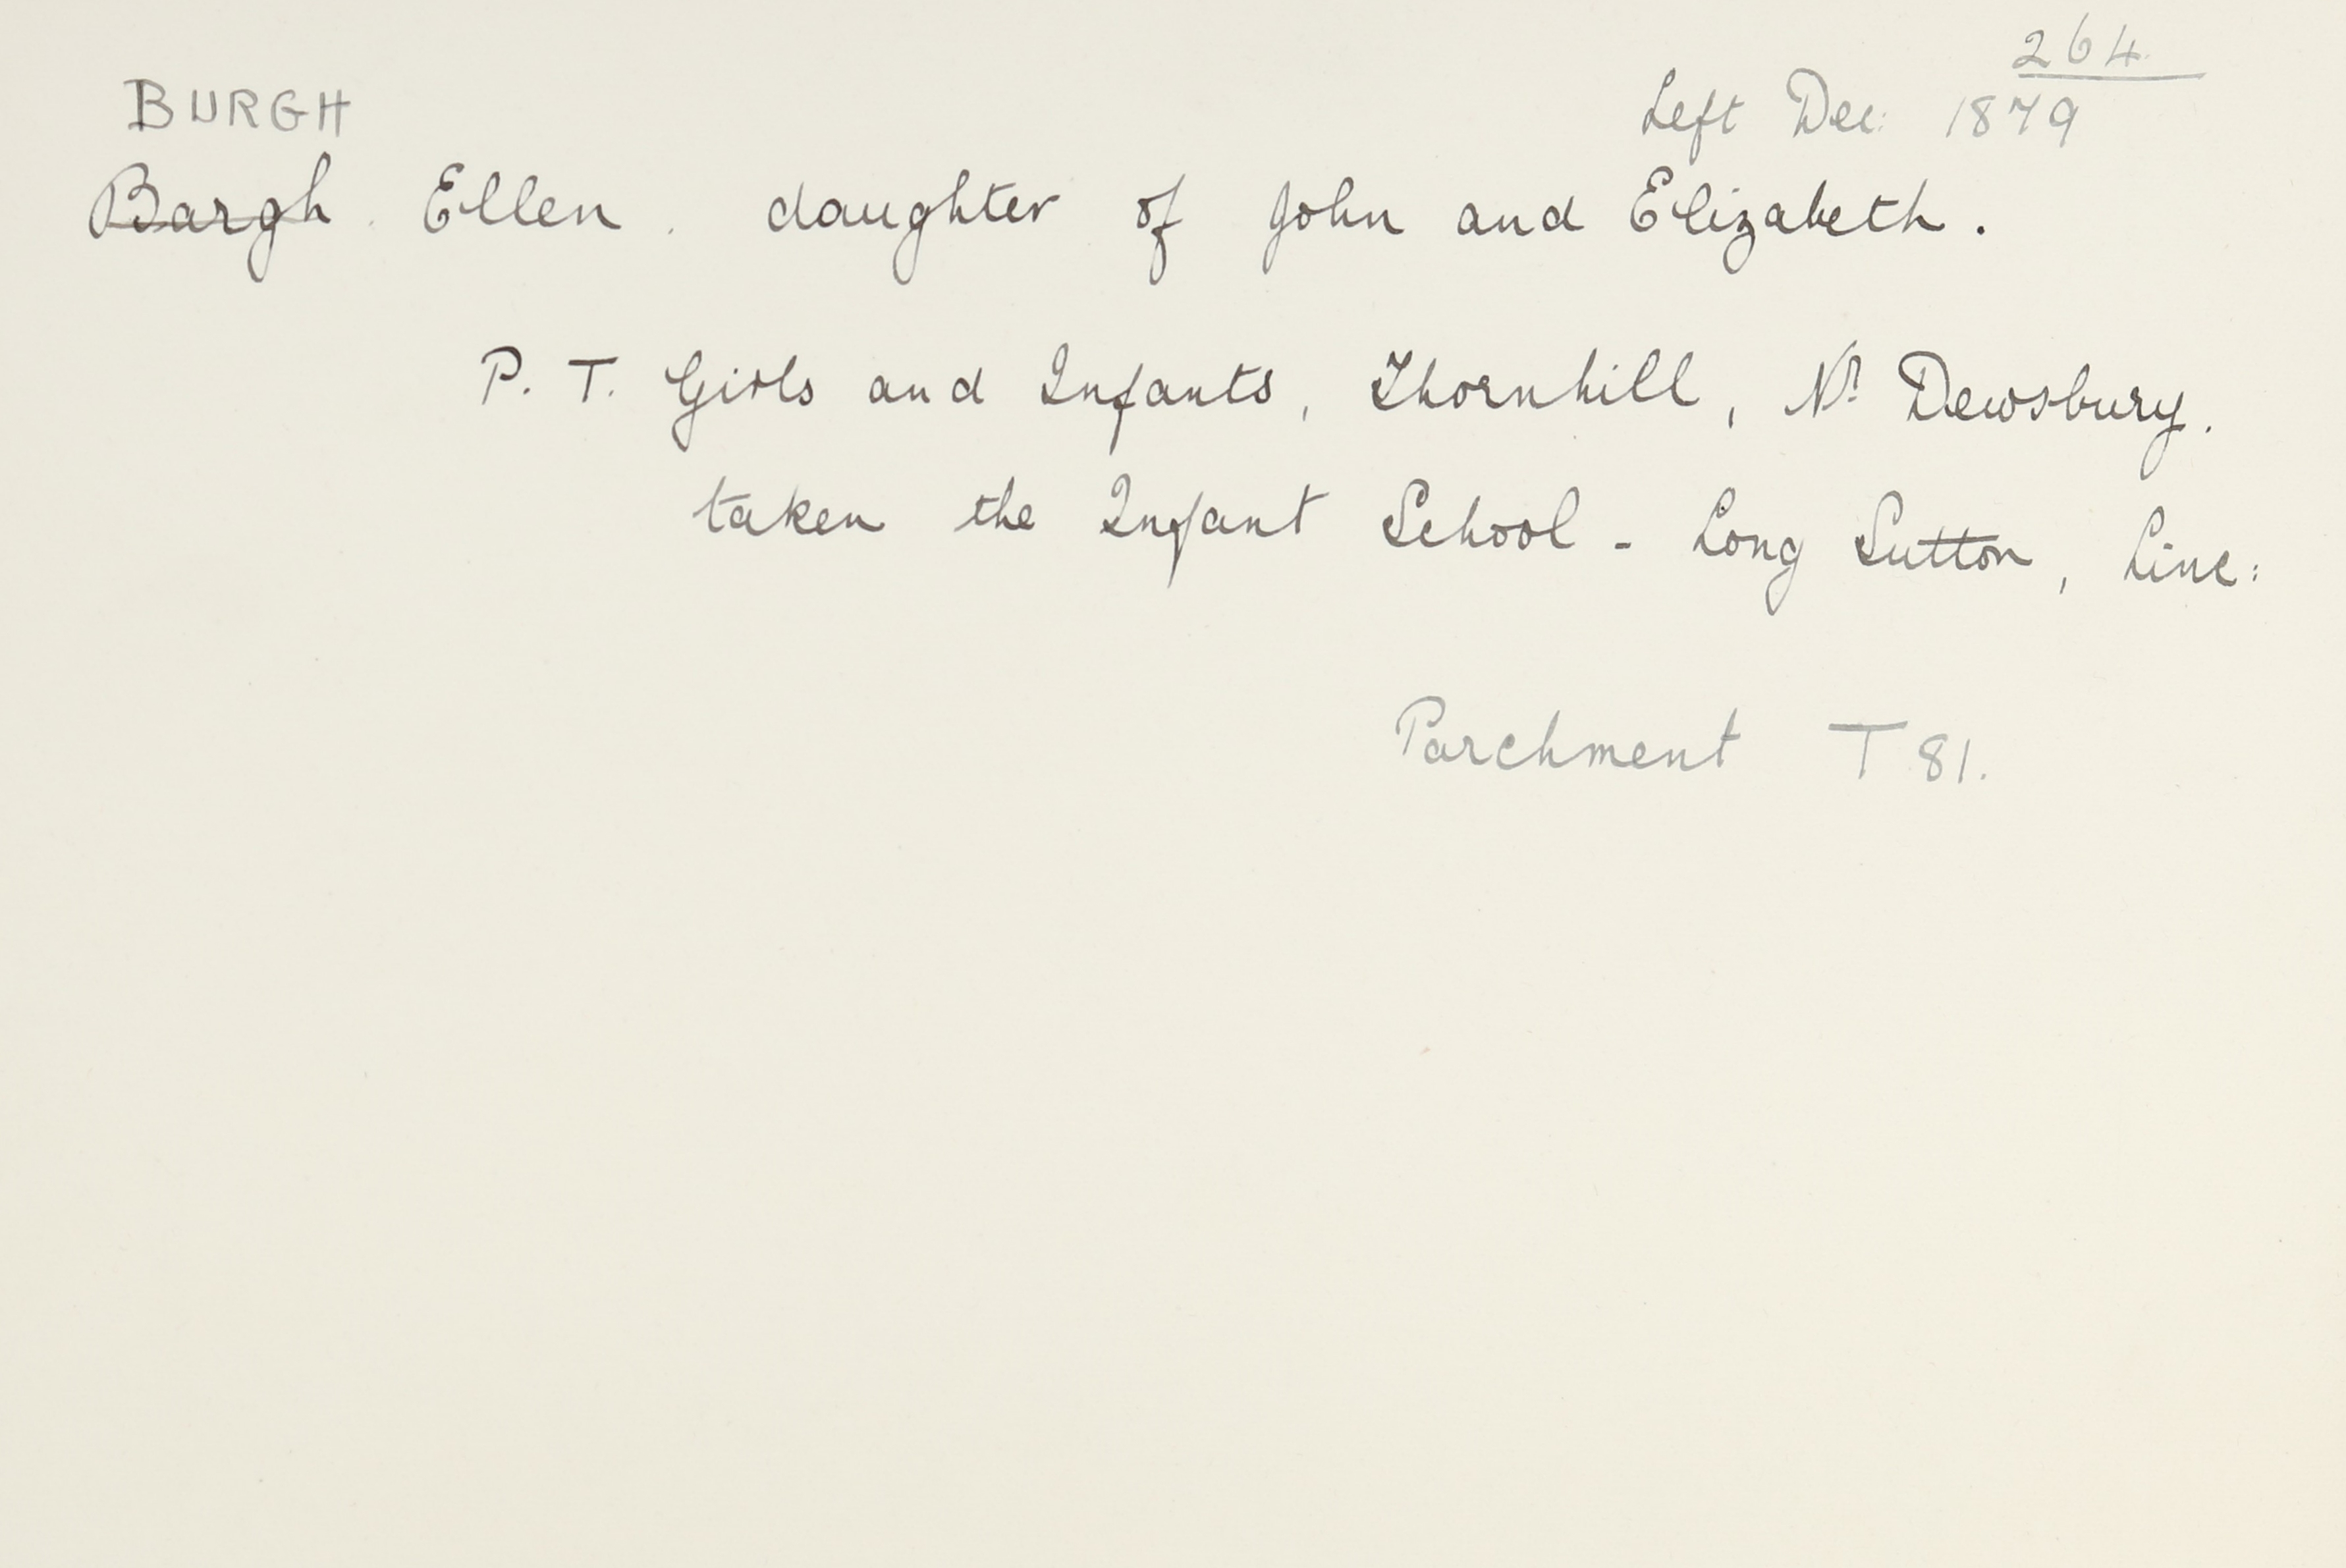 264
BURGH Left Dec: 1879
Bargh. Ellen. daughter of John and Elizabeth.
P. T. Girls and Infants, Thornhill, Nr Dewsbury.
taken the Infant School - Long Sutton, Linc:
Parchment T 81.